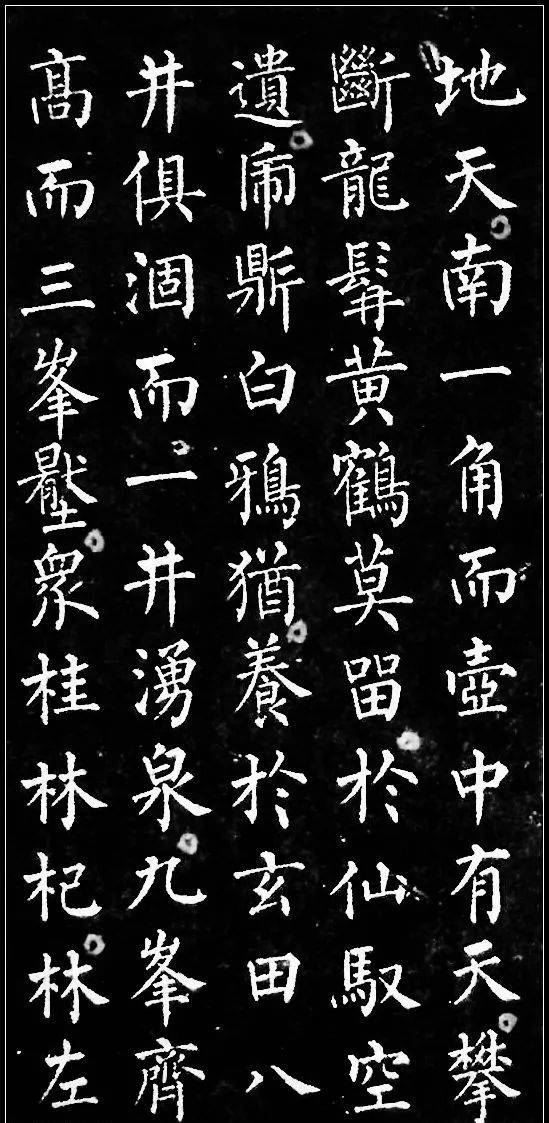 地天南一角而壺中有天攀
斷龍髯黃鶴莫留於仙馭空
遺虎鼎白鴉猶養於玄田八
井俱涸而一井湧泉九峯齊
高而三峯壓衆桂林杞林左